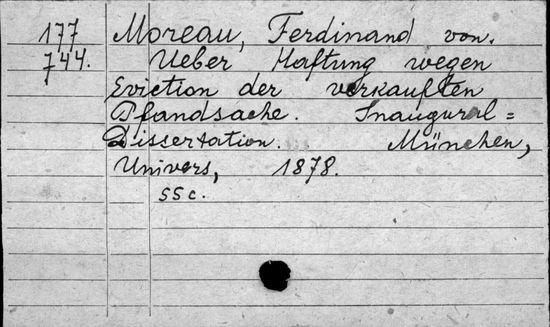 177 Moreau, Ferdinand von.
744. Ueber Haftung wegen
Eviction der verkauften
Pfandsache. Inaugural=
Dissertation. München,
Univers, 1878.
SSc.